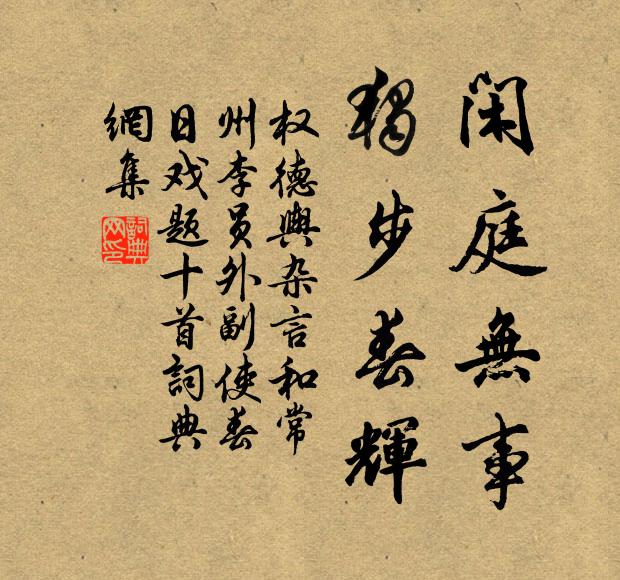 閑庭無事
獨步春輝
权德輿杂言和常
州李员外副使春
日戏题十首詞典
網集
詞典網印